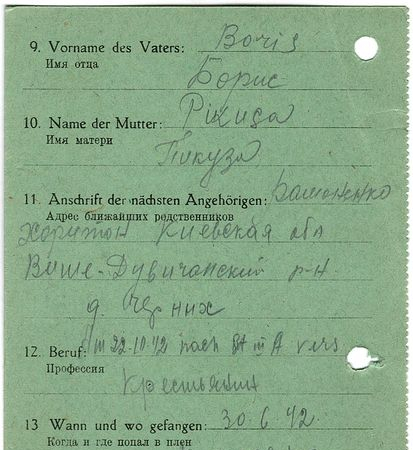 9. Vorname des Vaters: Boris
Имя отца
Борис
10. Name der Mutter:
Имя матери
Пикуза
11. Anschrift der nächsten Angehörigen:
Адрес ближайших родственников
Харитон Киевская обл
р-н
д.
12. Beruf: 22.10.42 nach
Профессия
Крестьянин
13 Wann und wo gefangen: 30.6.42.
Когда и где попал в плен